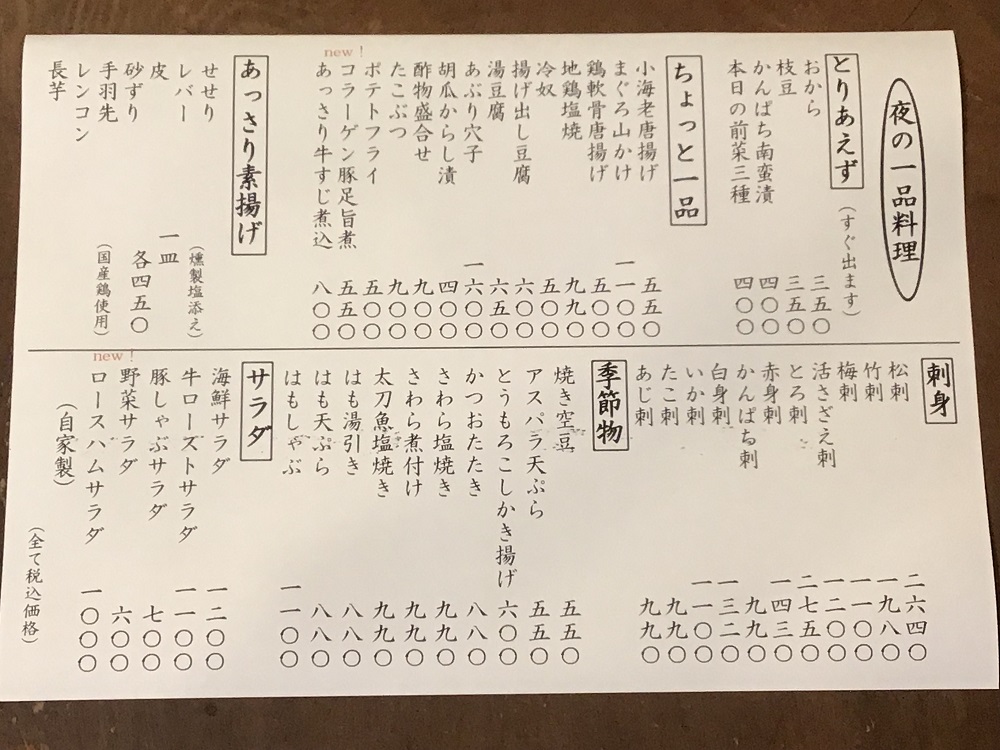 夜の一品料理
とりあえず
(すぐ出ます)
おから 三五〇
枝豆 三五〇
かんぱち南蛮漬 四〇〇
本日の前菜三種 四〇〇
ちょっと一品
小海老唐揚げ 五五〇
まぐろ山かけ 一一〇〇
鶏軟骨唐揚げ 五〇〇
地鶏塩焼 九九〇
冷奴 五〇〇
揚げ出し豆腐 六〇〇
湯豆腐 六五〇
あぶり穴子 一六〇〇
胡瓜からし漬 四〇〇
酢物盛合せ 九〇〇
たこぶつ 九〇〇
ポテトフライ 五〇〇
new!
コラーゲン豚足旨煮 五五〇
あっさり牛すじ煮込 八〇〇
あっさり素揚げ
(燻製塩添え)
せせり
レバー
皮
砂ずり
手羽先
レンコン
長芋
一皿
各四五〇
(国産鶏使用)
刺身
松刺 二六四〇
竹刺 一九八〇
梅刺 一一〇〇
活さざえ刺 一二〇〇
とろ刺 二七五〇
赤身刺 一四三〇
かんぱち刺 九九〇
白身刺 一三二〇
いか刺 一一〇〇
たこ刺 九九〇
あじ刺 九九〇
季節物
焼き空豆 五五〇
アスパラ天ぷら 五五〇
とうもろこしかき揚げ 六〇〇
かつおたたき 八八〇
さわら塩焼き 九九〇
さわら煮付け 九九〇
太刀魚塩焼き 九九〇
はも湯引き 八八〇
はも天ぷら 八八〇
はもしゃぶ 一一〇〇
サラダ
海鮮サラダ 一二〇〇
牛ローストサラダ 一一〇〇
豚しゃぶサラダ 七〇〇
野菜サラダ 六〇〇
new!
ロースハムサラダ 一〇〇〇
(自家製)
(全て税込価格)